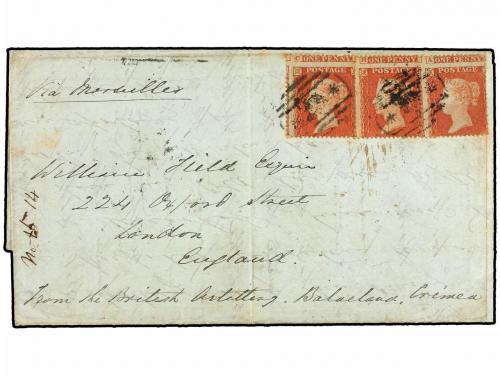 ONE PENNY ONE PENNY ONE PENNY
POSTAGE POSTAGE POSTAGE
Via Marseilles
William Field Esquire
224 Oxford Street
London
England.
No 14
From the British Artillery. Balaclava, Crimea